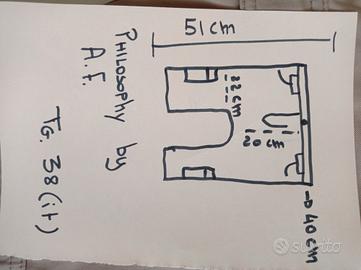 51 cm
22 cm
20 cm
→ 40 cm
PHILOSOPHY by
A.F.
TG. 38 (it)
subito